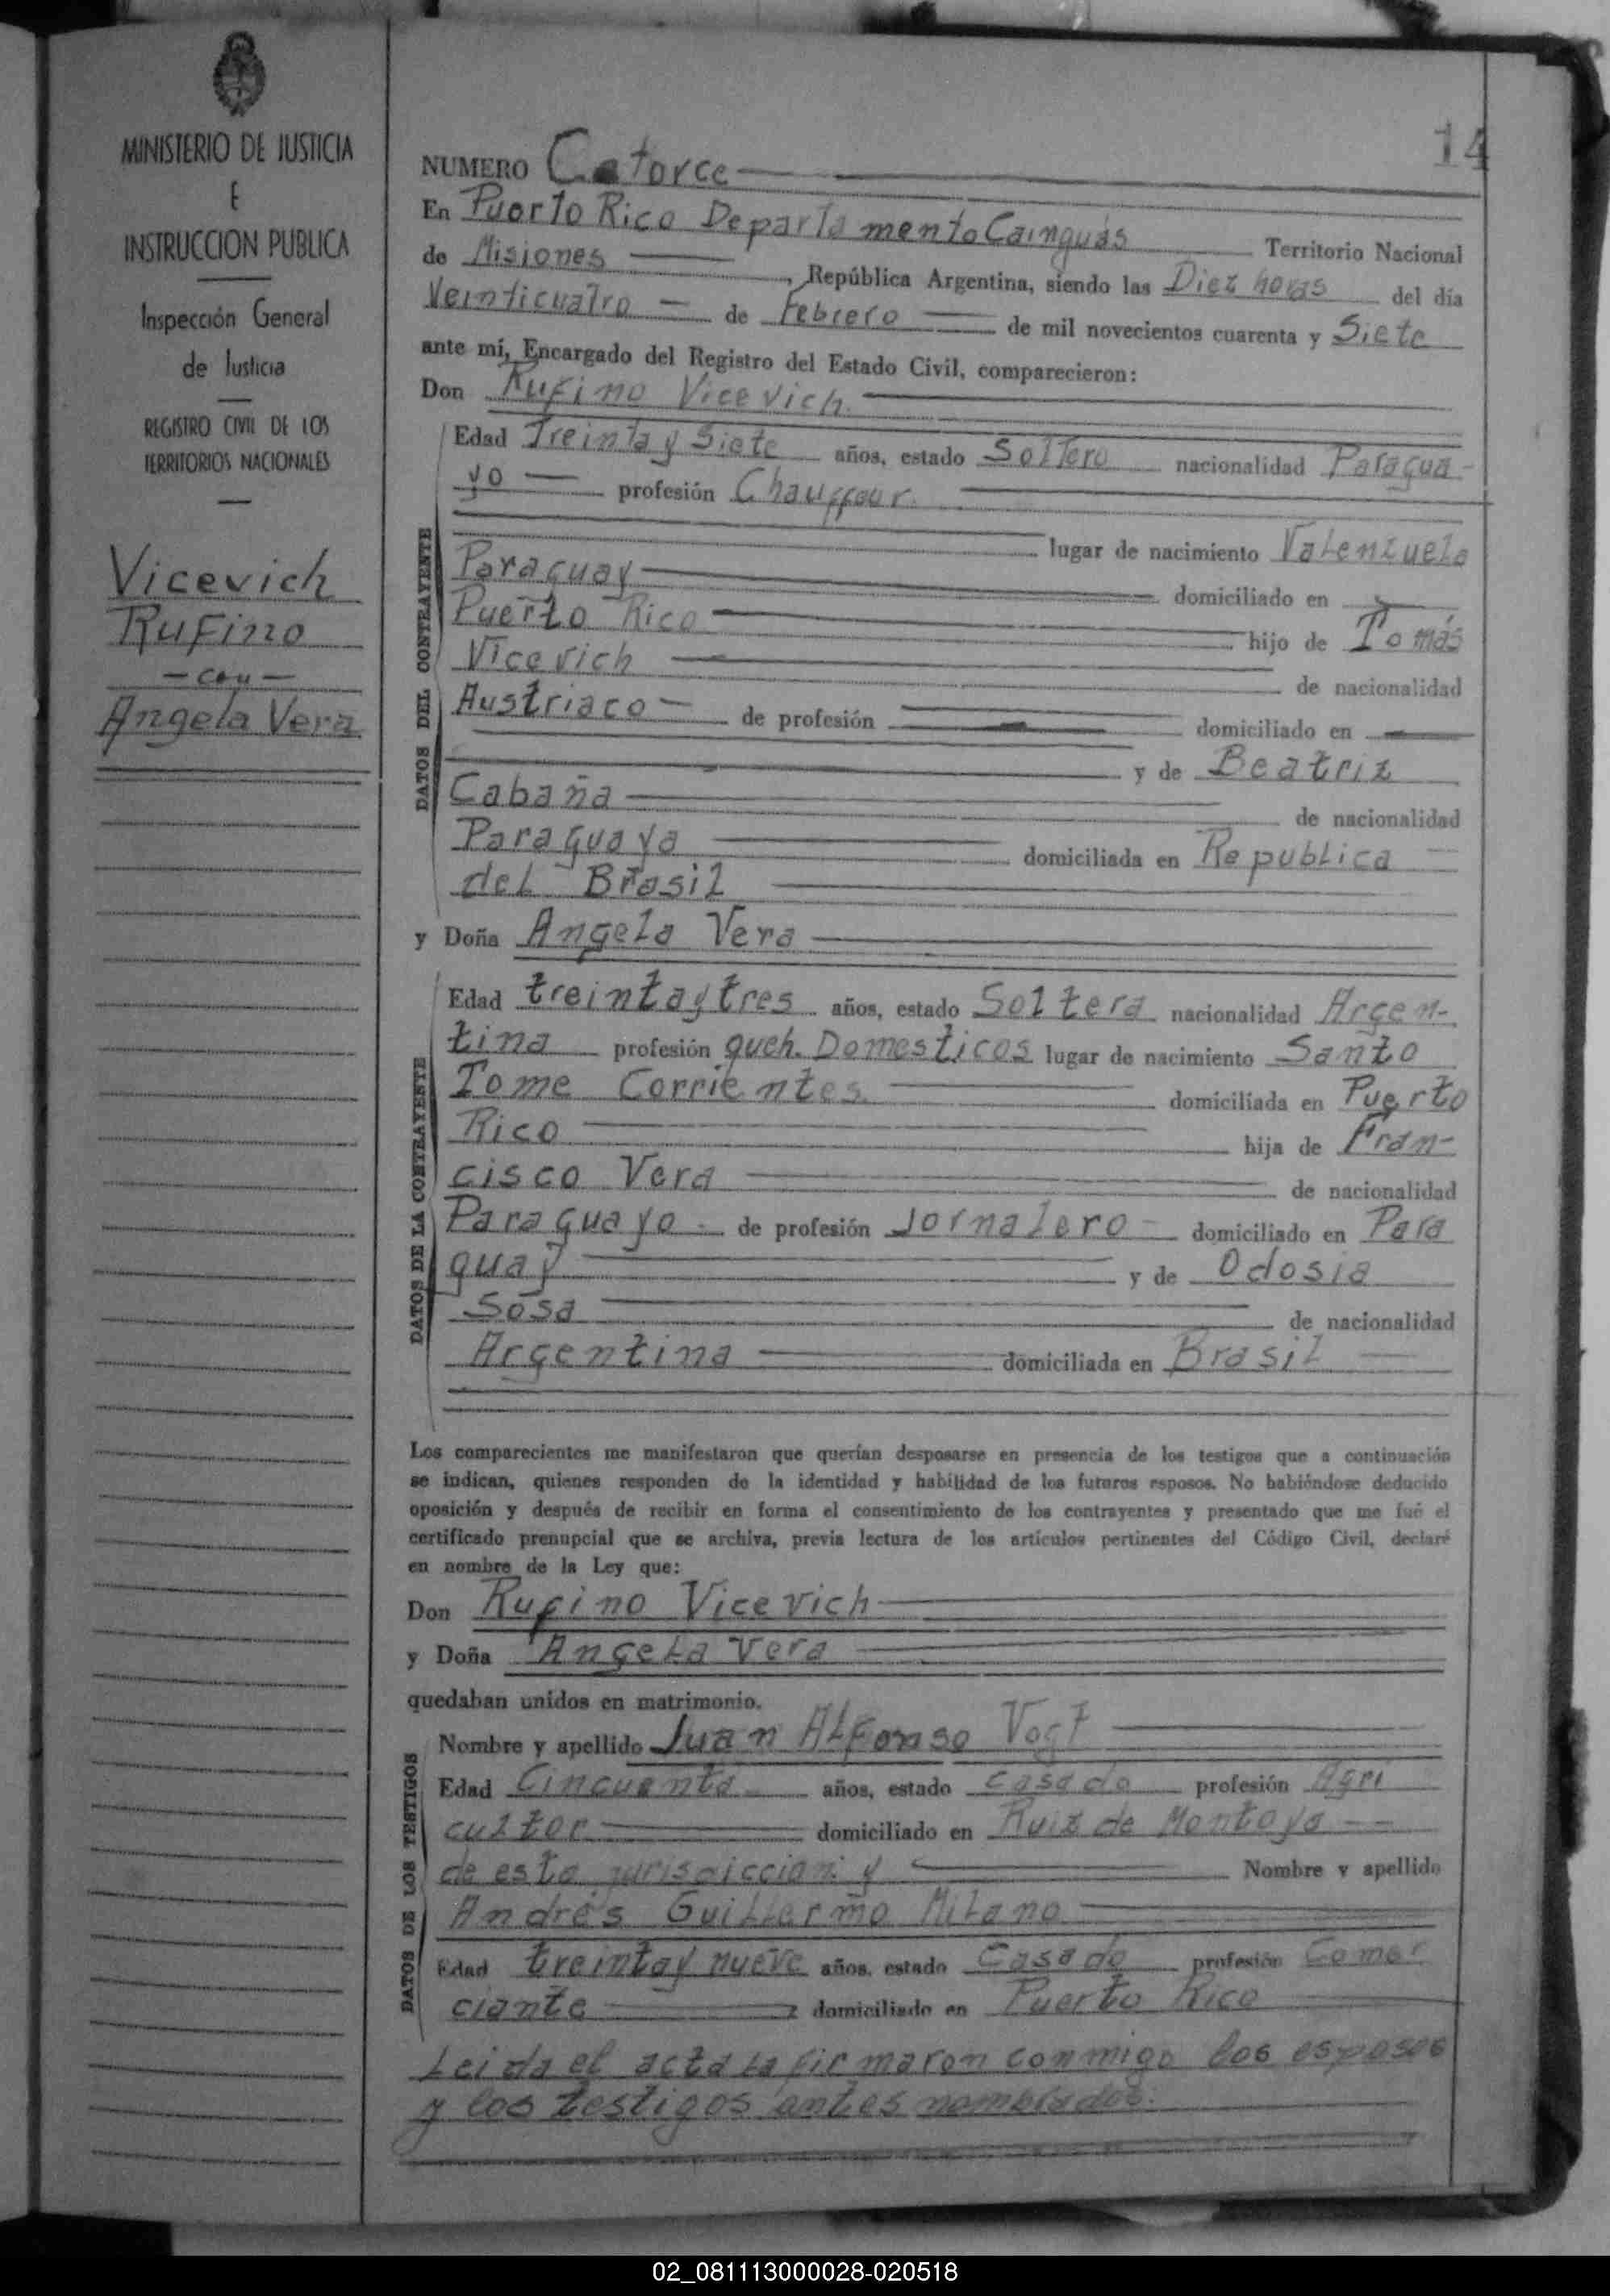 MINISTERIO DE JUSTICIA
E
INSTRUCCION PUBLICA
Inspección General
de Justicia
REGISTRO CIVIL DE LOS
TERRITORIOS NACIONALES
Vicevich
Rufino
— con —
Angela Vera
14
NUMERO Catorce
En Puerto Rico Departamento Cainguás Territorio Nacional
de Misiones, República Argentina, siendo las Diez horas del día
Veinticuatro de Febrero de mil novecientos cuarenta y Siete
ante mí, Encargado del Registro del Estado Civil, comparecieron:
Don Rufino Vicevich.
DATOS DEL CONTRAYENTE
Edad Treinta y Siete años, estado Soltero nacionalidad Paragua-
yo profesión Chauffeur.
lugar de nacimiento Valenzuela
Paraguay domiciliado en
Puerto Rico hijo de Tomás
Vicevich de nacionalidad
Austriaco de profesión domiciliado en
y de Beatriz
Cabaña de nacionalidad
Paraguaya domiciliada en Republica
del Brasil
y Doña Angela Vera
DATOS DE LA CONTRAYENTE
Edad treinta y tres años, estado Soltera nacionalidad Argen-
tina profesión queh. Domesticos lugar de nacimiento Santo
Tome Corrientes. domiciliada en Puerto
Rico hija de Fran-
cisco Vera de nacionalidad
Paraguayo de profesión Jornalero domiciliado en Para
guay y de Odosia
Sosa de nacionalidad
Argentina domiciliada en Brasil
Los comparecientes me manifestaron que querían desposarse en presencia de los testigos que a continuación
se indican, quienes responden de la identidad y habilidad de los futuros esposos. No habiéndose deducido
oposición y después de recibir en forma el consentimiento de los contrayentes y presentado que me fué el
certificado prenupcial que se archiva, previa lectura de los artículos pertinentes del Código Civil, declaré
en nombre de la Ley que:
Don Rufino Vicevich
y Doña Angela Vera
quedaban unidos en matrimonio.
DATOS DE LOS TESTIGOS
Nombre y apellido Juan Alfonso Vogt
Edad Cincuenta años, estado casado profesión Agri
cultor domiciliado en Ruiz de Montoya
de esta jurisdiccion: y Nombre y apellido
Andrés Guillermo Milano
Edad treinta y nueve años, estado Casado profesión Comer
ciante domiciliado en Puerto Rico
Leida el acta la firmaron conmigo los esposos
y los testigos antes nombrados.
02_081113000028-020518